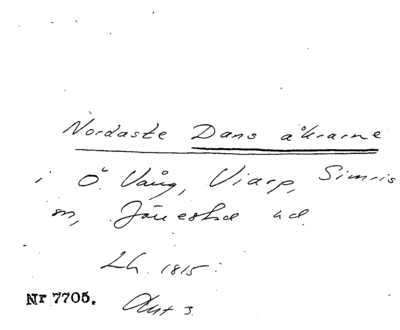 Nordaste Dans åkrarne
i Ö. Vång, Viarp, Simris
sn, Järrestad hd.
Lh. 1815.
Nr 7705. Akt 3.